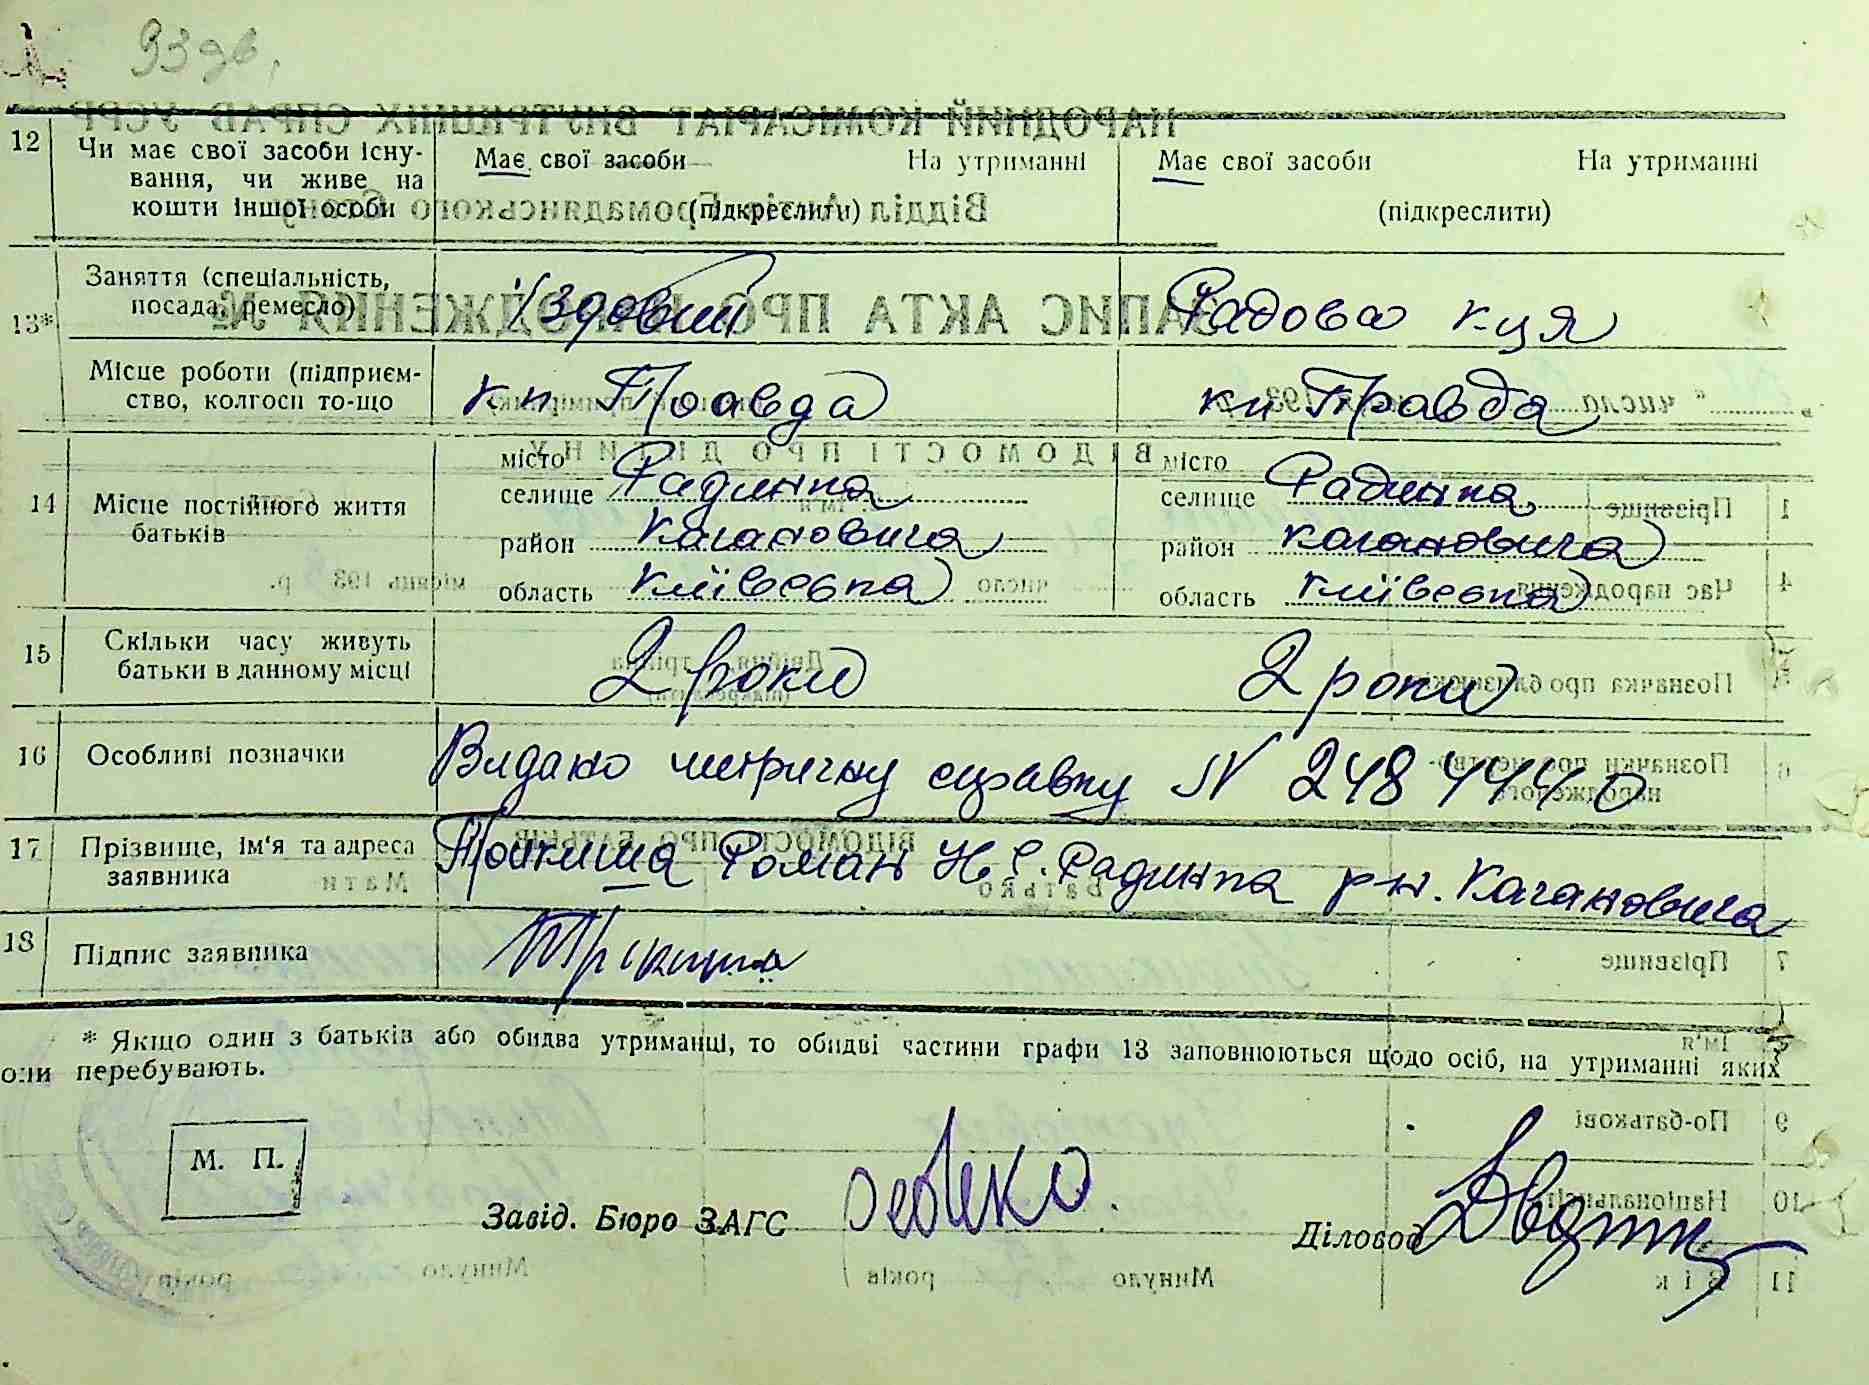 93 зв.
12 Чи має свої засоби існу- Має свої засоби На утриманні Має свої засоби На утриманні
вання, чи живе на
кошти іншої особи (підкреслити) (підкреслити)
13* Заняття (спеціальність, їздовий Рядова к-ця
посада, ремесло)
Місце роботи (підприєм- кп Правда кп Правда
ство, колгосп то-що
14 Місце постійного життя місто місто
батьків селище Радинка селище Радинка
район Кагановича район Кагановича
область Київська область Київська
15 Скільки часу живуть 2 роки 2 роки
батьки в данному місці
16 Особливі позначки Видано метричну справку N 248
17 Прізвище, ім'я та адреса Роман Н. С. Радинка р-н. Кагановича
заявника
18 Підпис заявника
* Якщо один з батьків або обидва утриманці, то обидві частини графи 13 заповнюються щодо осіб, на утриманні яких
они перебувають.
М. П.
Завід. Бюро ЗАГС
Діловод